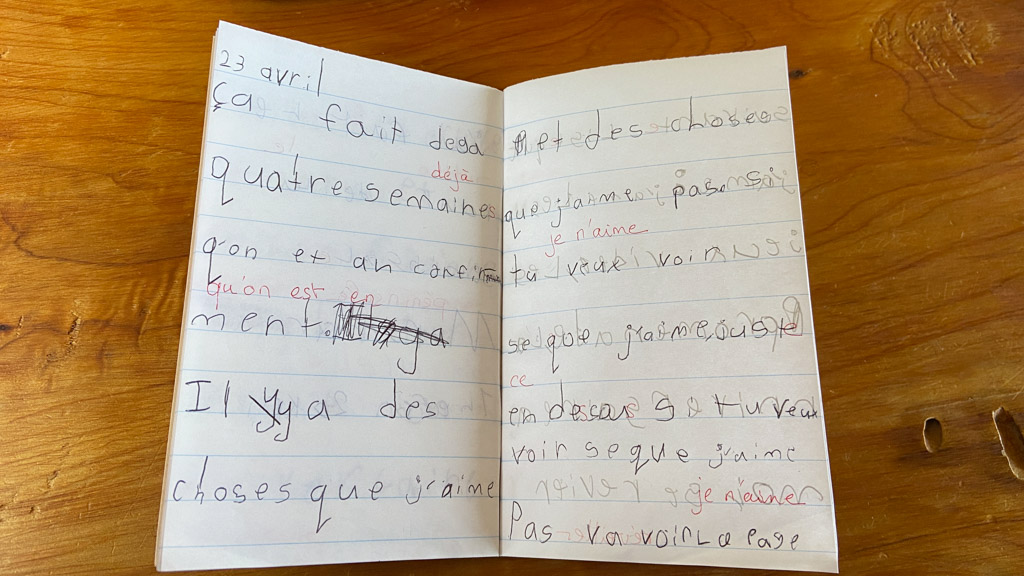 23 avril
ça fait dega
déjà
quatre semaines
q'on et an confin
qu'on est en
ment.
Il yya des
choses que j'aime
et des choses
que j'aime pas. si
je n'aime
tu veux voir
se que j'aime juste
ce
en dessous si tu veux
voir se que j'aime
je n'aime
Pas va voir La Page